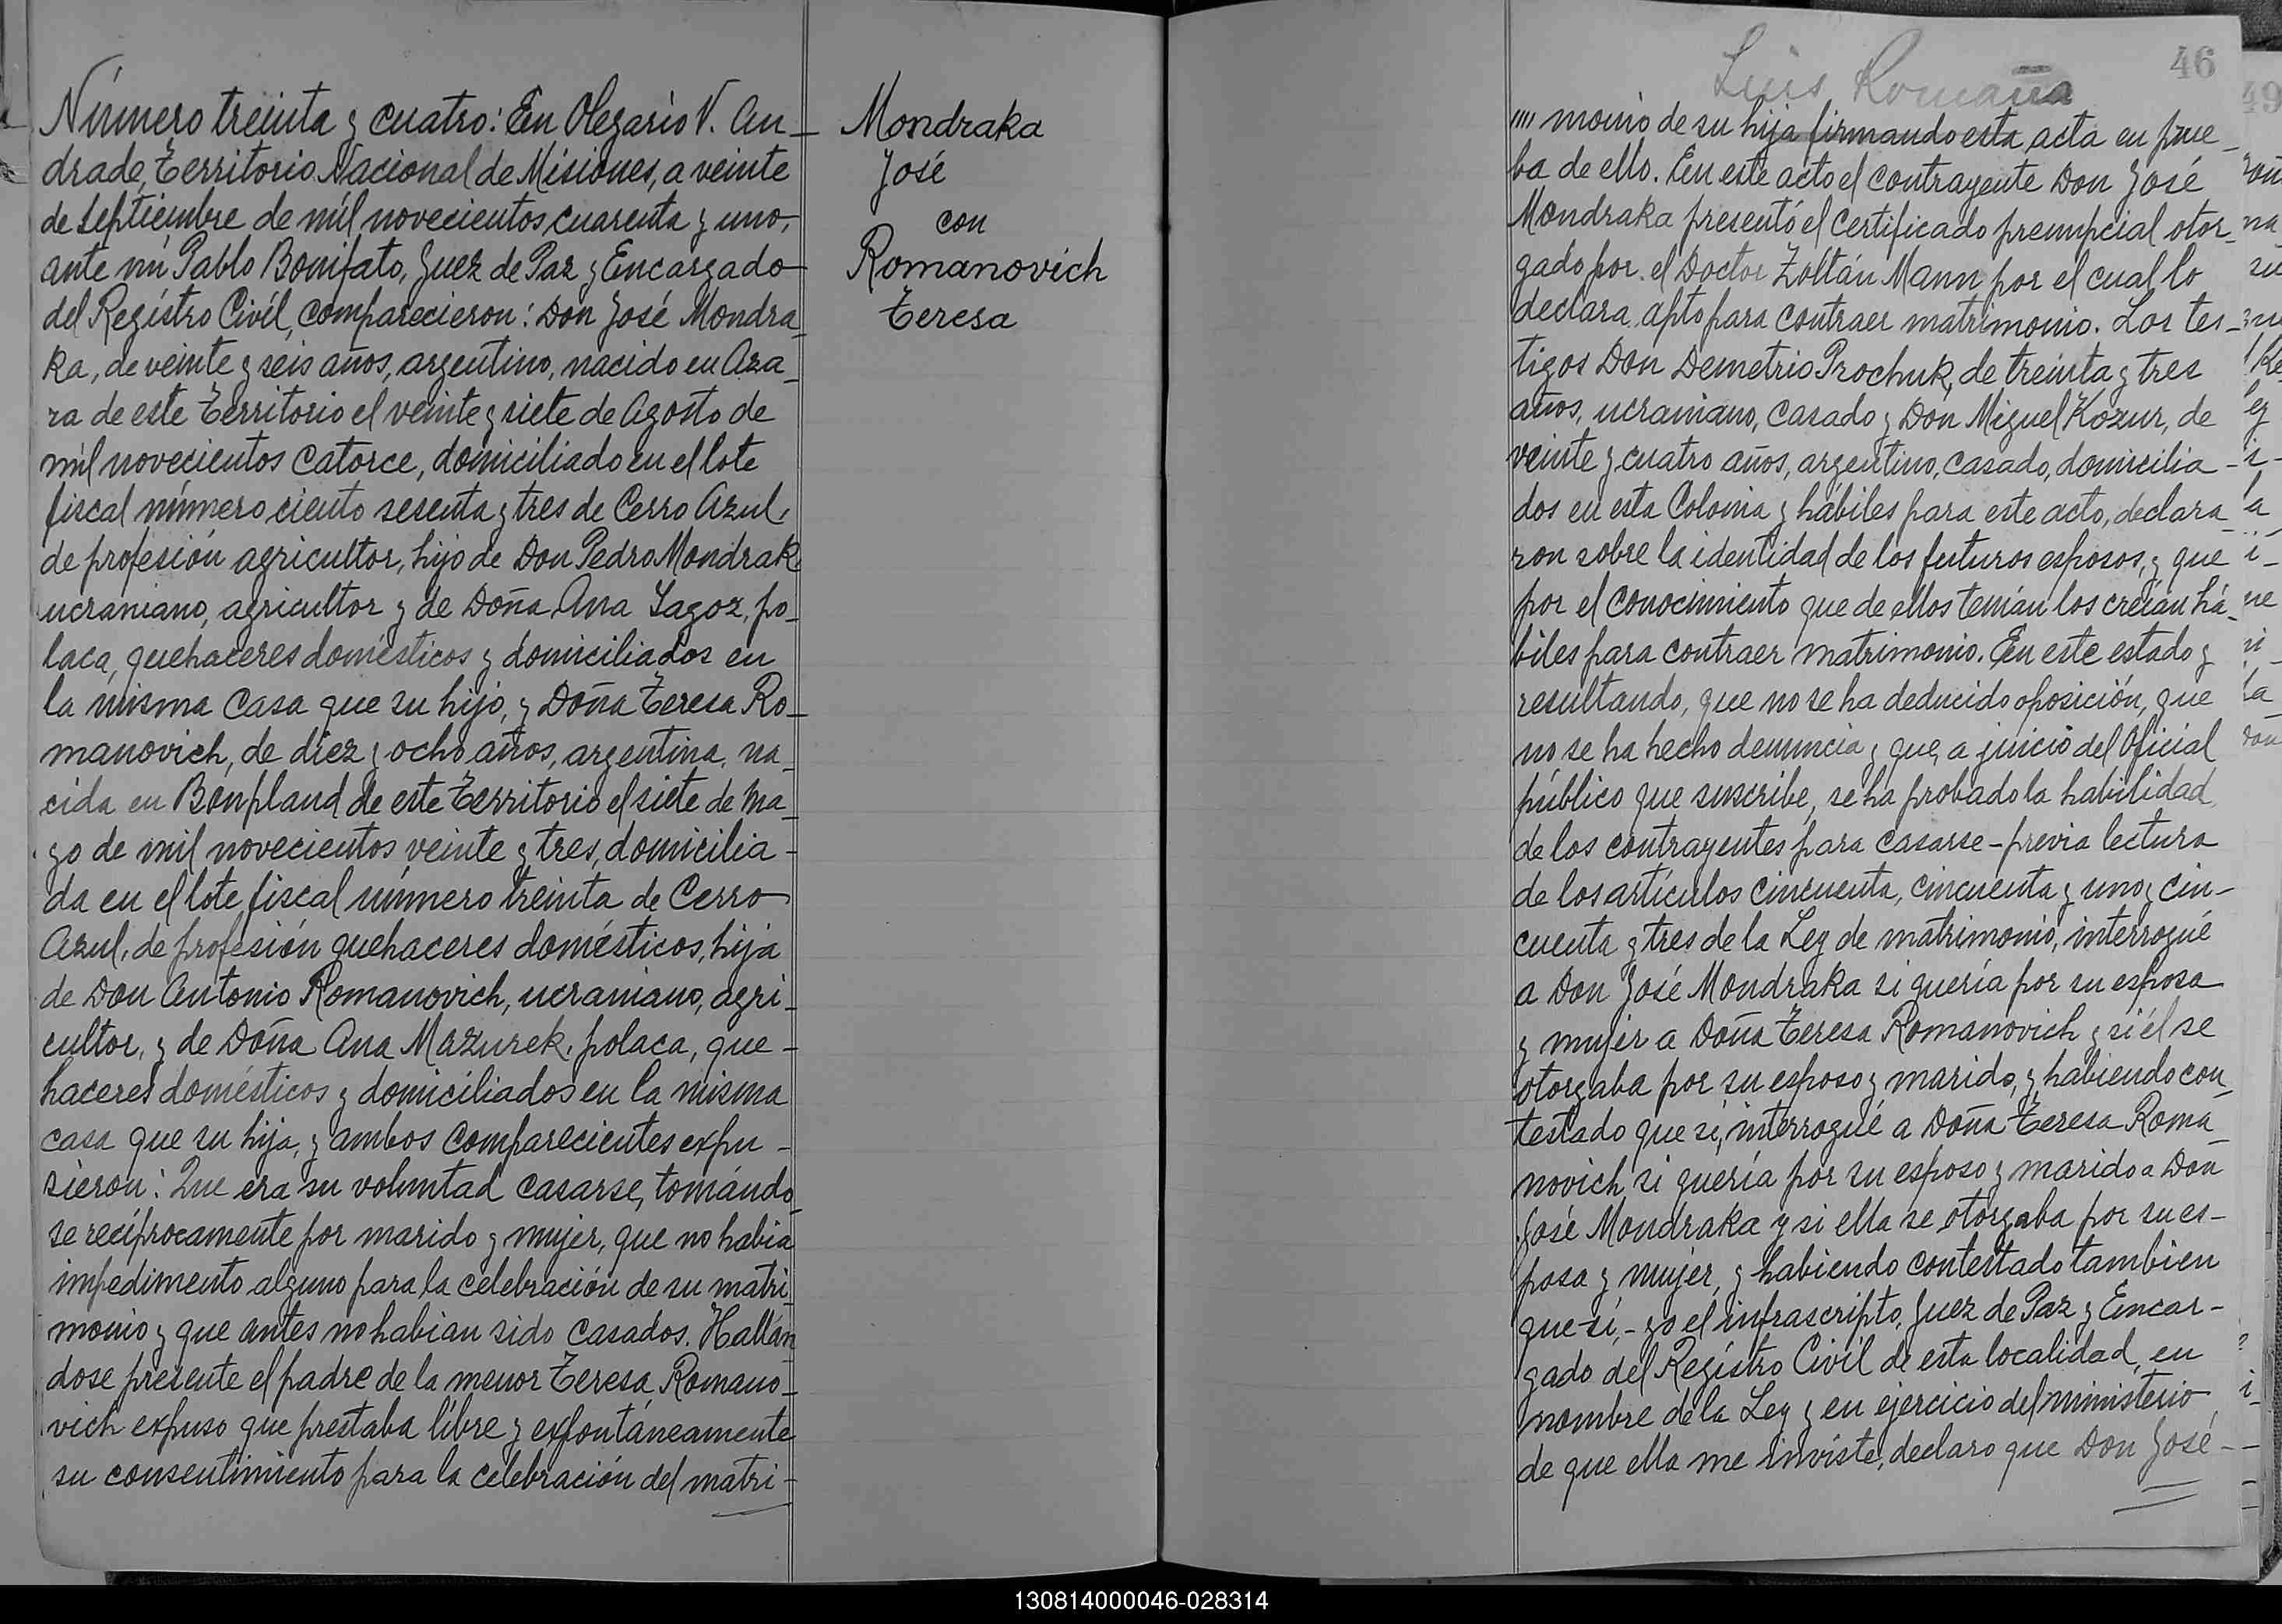 Número treinta y cuatro: En Olegario V. An-
drade, Territorio Nacional de Misiones, a veinte
de septiembre de mil novecientos cuarenta y uno,
ante mí Pablo Bonifato, Juez de Paz y Encargado
del Regístro Civíl, comparecieron: Don José Mondra-
ka, de veinte y seis años, argentino, nacido en Aza-
ra de este Territorio el veinte y siete de Agosto de
mil novecientos catorce, domiciliado en el lote
fiscal número ciento sesenta y tres de Cerro Azul,
de profesión agricultor, hijo de Don Pedro Mondrak
ucraniano, agricultor y de Doña Ana Lagoz, po-
laca, quehaceres domésticos y domiciliados en
la misma casa que su hijo, y Doña Teresa Ro-
manovich, de diez y ocho años, argentina, na-
cida en Bonpland de este Territorio el siete de Ma-
yo de mil novecientos veinte y tres, domicilia-
da en el lote fiscal número treinta de Cerro
Azul, de profesión quehaceres domésticos, hija
de Don Antonio Romanovich, ucraniano, agri-
cultor, y de Doña Ana Mazurek, polaca, que-
haceres domésticos y domiciliados en la misma
casa que su hija, y ambos comparecientes expu-
sieron: Que era su voluntad casarse, tomándo
se recíprocamente por marido y mujer, que no habia
impedimento alguno para la celebración de su matri-
monio y que antes no habian sido casados. Hallán
dose presente el padre de la menor Teresa Romano-
vich expuso que prestaba líbre y expontáneamente
su consentimiento para la celebración del matri-
Mondraka
José
con
Romanovich
Teresa
46
Luis Romaña
"" monio de su hija firmando esta acta en prue-
ba de ello. En este acto el contrayente Don José
Mondraka presentó el certificado prenupcial otor-
gado por el Doctor Zoltán Mann por el cual lo
declara apto para contraer matrimonio. Los tes-
tigos Don Demetrio Prochuk, de treinta y tres
años, ucraniano, casado y Don Miguel Kozur, de
veinte y cuatro años, argentino, casado, domicilia-
dos en esta Colonia y hábiles para este acto, declara-
ron sobre la identidad de los futuros esposos, y que
por el conocimiento que de ellos tenían los creían há-
biles para contraer matrimonio. En este estado y
resultando, que no se ha deducido oposición, que
no se ha hecho denuncia y que, a juicio del Oficial
público que suscribe, se ha probado la habilidad
de los contrayentes para casarse - previa lectura
de los artículos cincuenta, cincuenta y uno y cin-
cuenta y tres de la Ley de matrimonio, interrogué
a Don José Mondraka si quería por su esposa
y mujer a Doña Teresa Romanovich y si él se
otorgaba por su esposo y marido, y habiendo con-
testado que sí, interrogué a Doña Teresa Roma-
novich si quería por su esposo y marido a Don
José Mondraka y si ella se otorgaba por su es-
posa y mujer, y habiendo contestado tambien
que sí, - yo el infrascripto, Juez de Paz y Encar-
gado del Regístro Civíl de esta localidad, en
nombre de la Ley y en ejercicio del ministerio
de que ella me inviste, declaro que Don José -
130814000046-028314